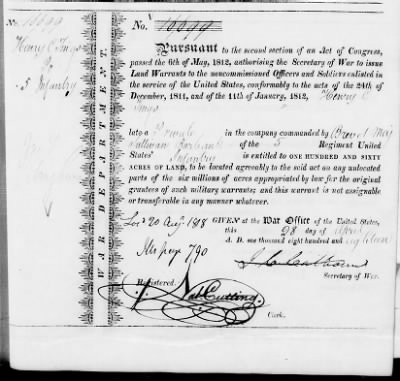 16699
Henry C Tingo
of
5 Infantry
WAR DEPARTMENT.
No. 16699
Pursuant to the second section of an Act of Congress,
passed the 6th of May, 1812, authorising the Secretary of War to issue
Land Warrants to the noncommissioned Officers and Soldiers enlisted in
the service of the United States, conformably to the acts of the 24th of
December, 1811, and of the 11th of January, 1812, Henry C
Tingo
late a Private in the company commanded by Brevet Maj
Sullivan Burbank of the 5 Regiment United
States' Infantry is entitled to ONE HUNDRED AND SIXTY
ACRES OF LAND, to be located agreeably to the said act on any unlocated
parts of the six millions of acres appropriated by law for the original
grantees of such military warrants; and this warrant is not assignable
or transferable in any manner whatever.
20 Augt 1818 GIVEN at the War Office of the United States,
this 28 day of April
A. D. one thousand eight hundred and eighteen
7190
J C Calhoun
Secretary of War.
Registered.
Nat Cutting
Clerk.